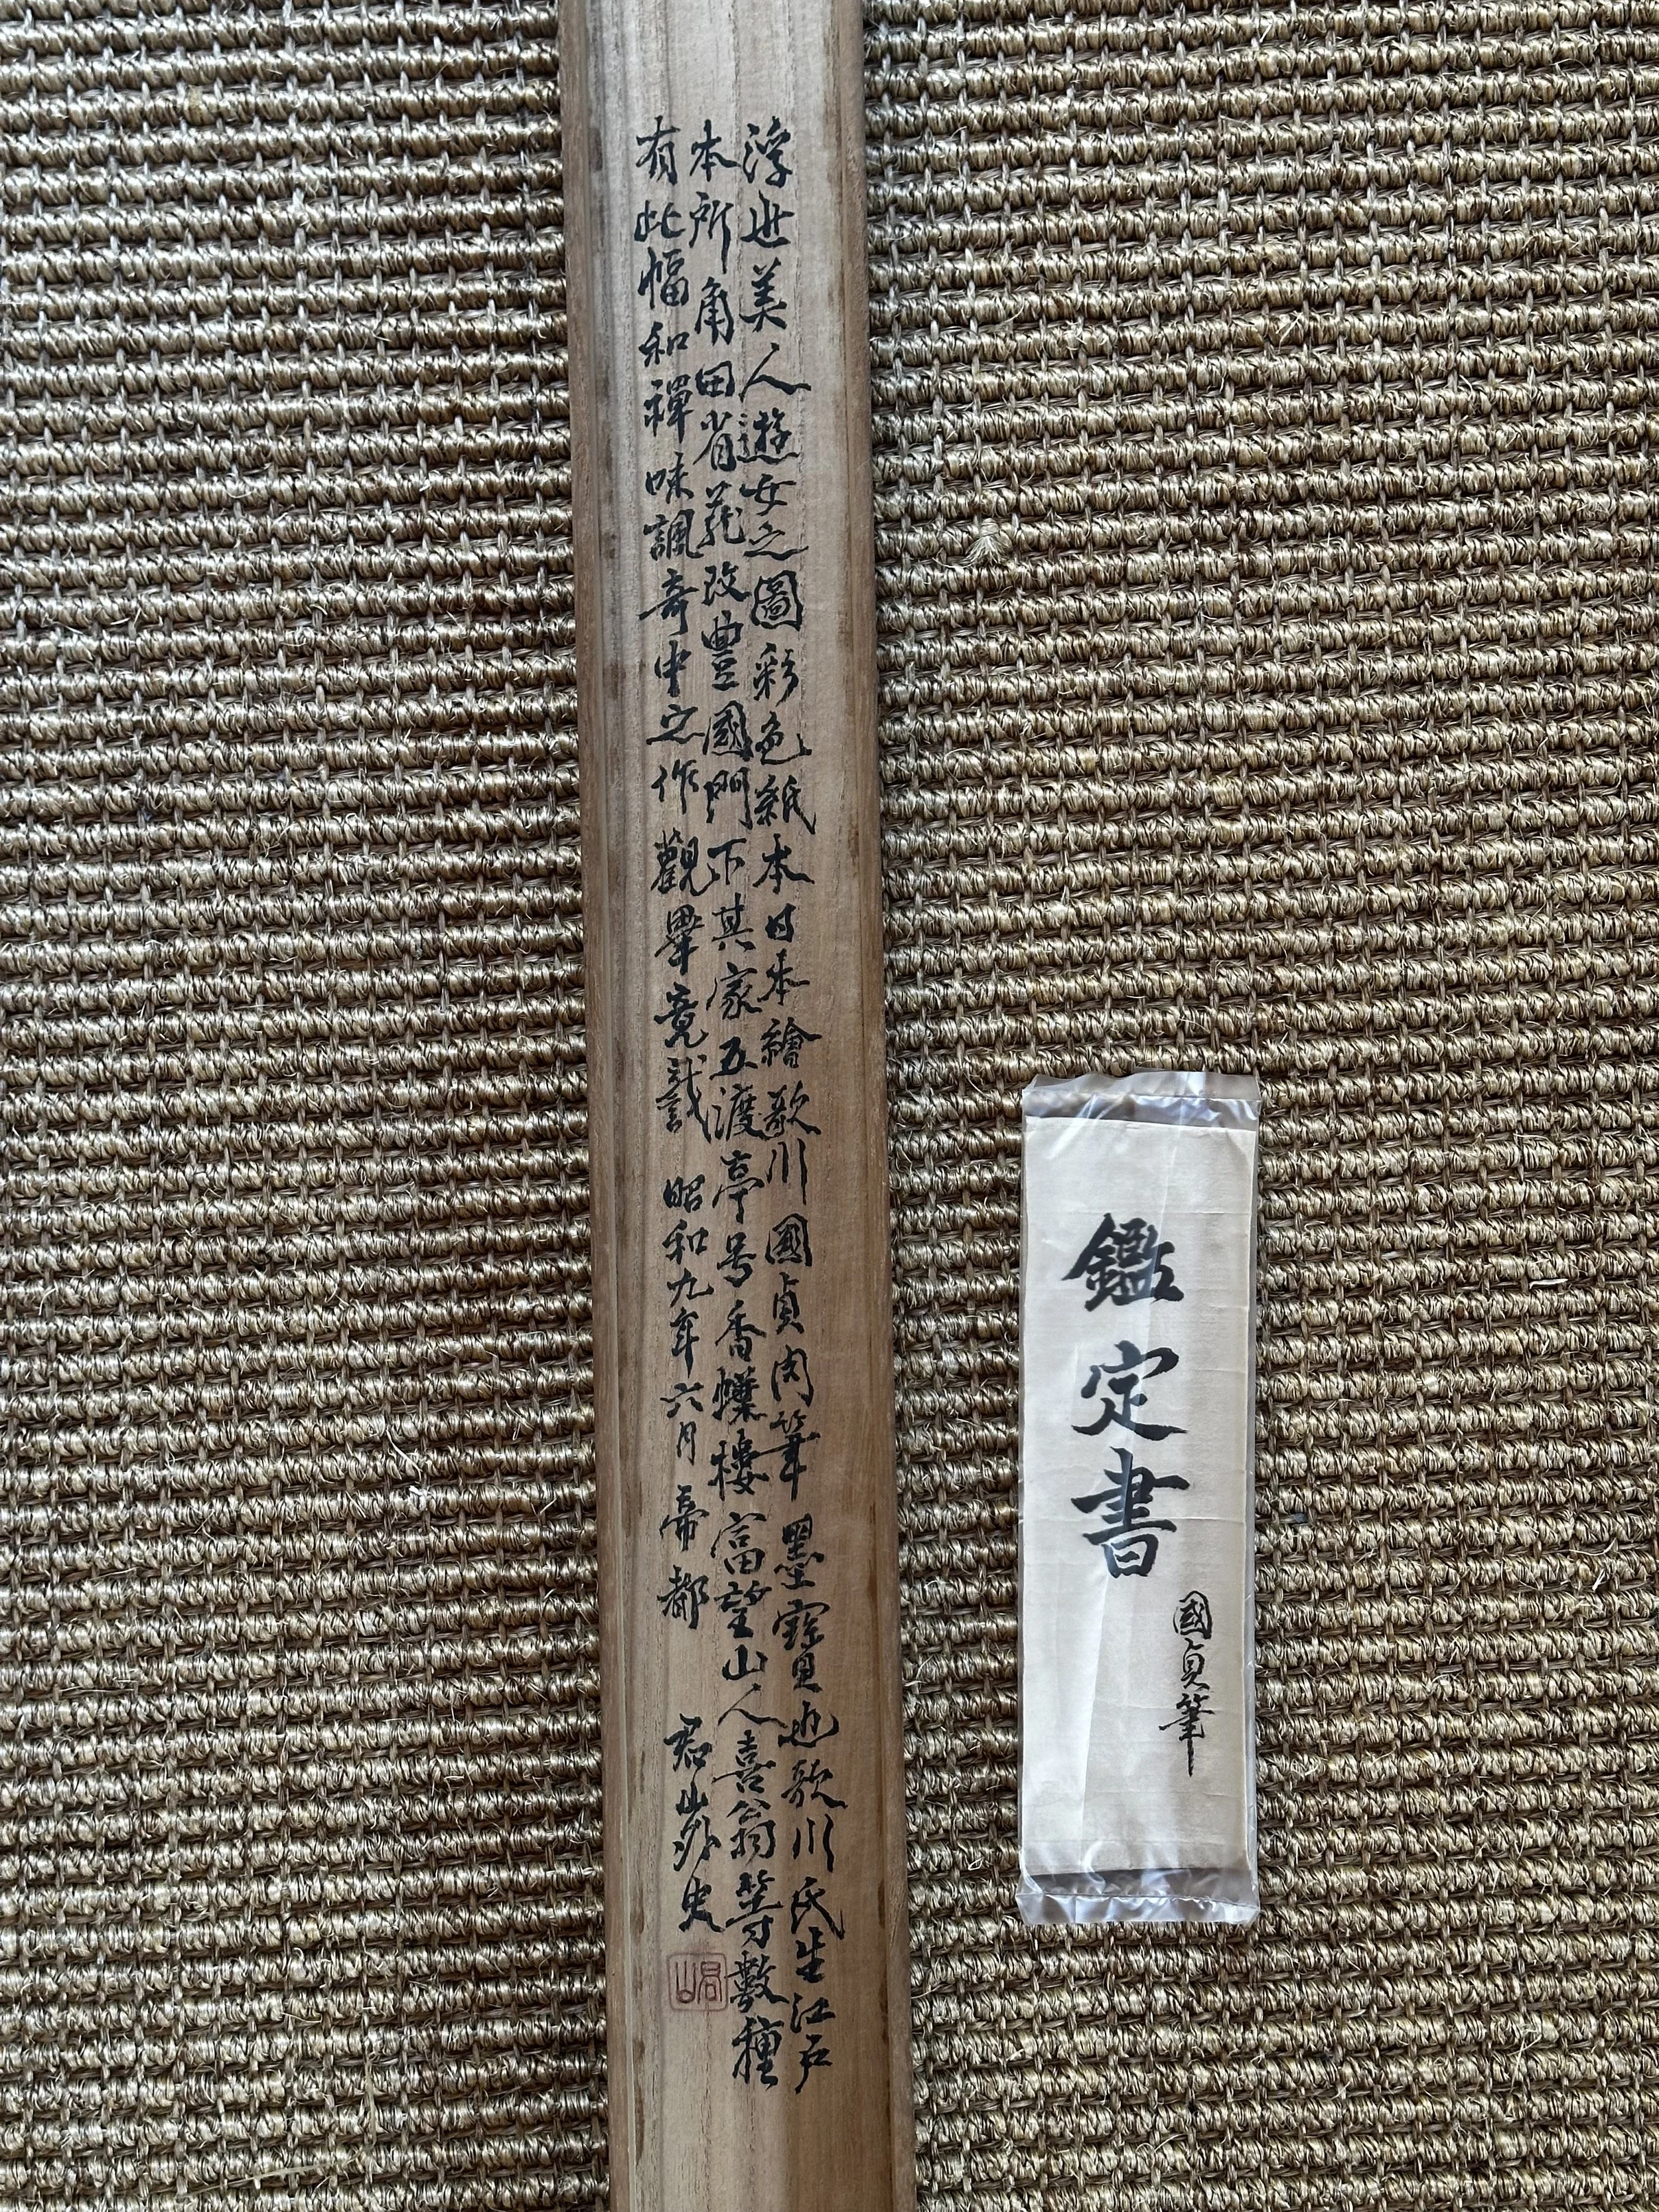 浮世美人遊女之圖彩色紙本日本繪歌川國貞肉筆墨寶也歌川氏生江戸
本所角田省苑改豊國門下其家五渡亭号香蝶樓富望山人喜翁等數種
有此幅和禪味諷奇中之作觀畢竟誌 昭和九年六月帝都 君山外史
君山
鑑定書
國貞筆